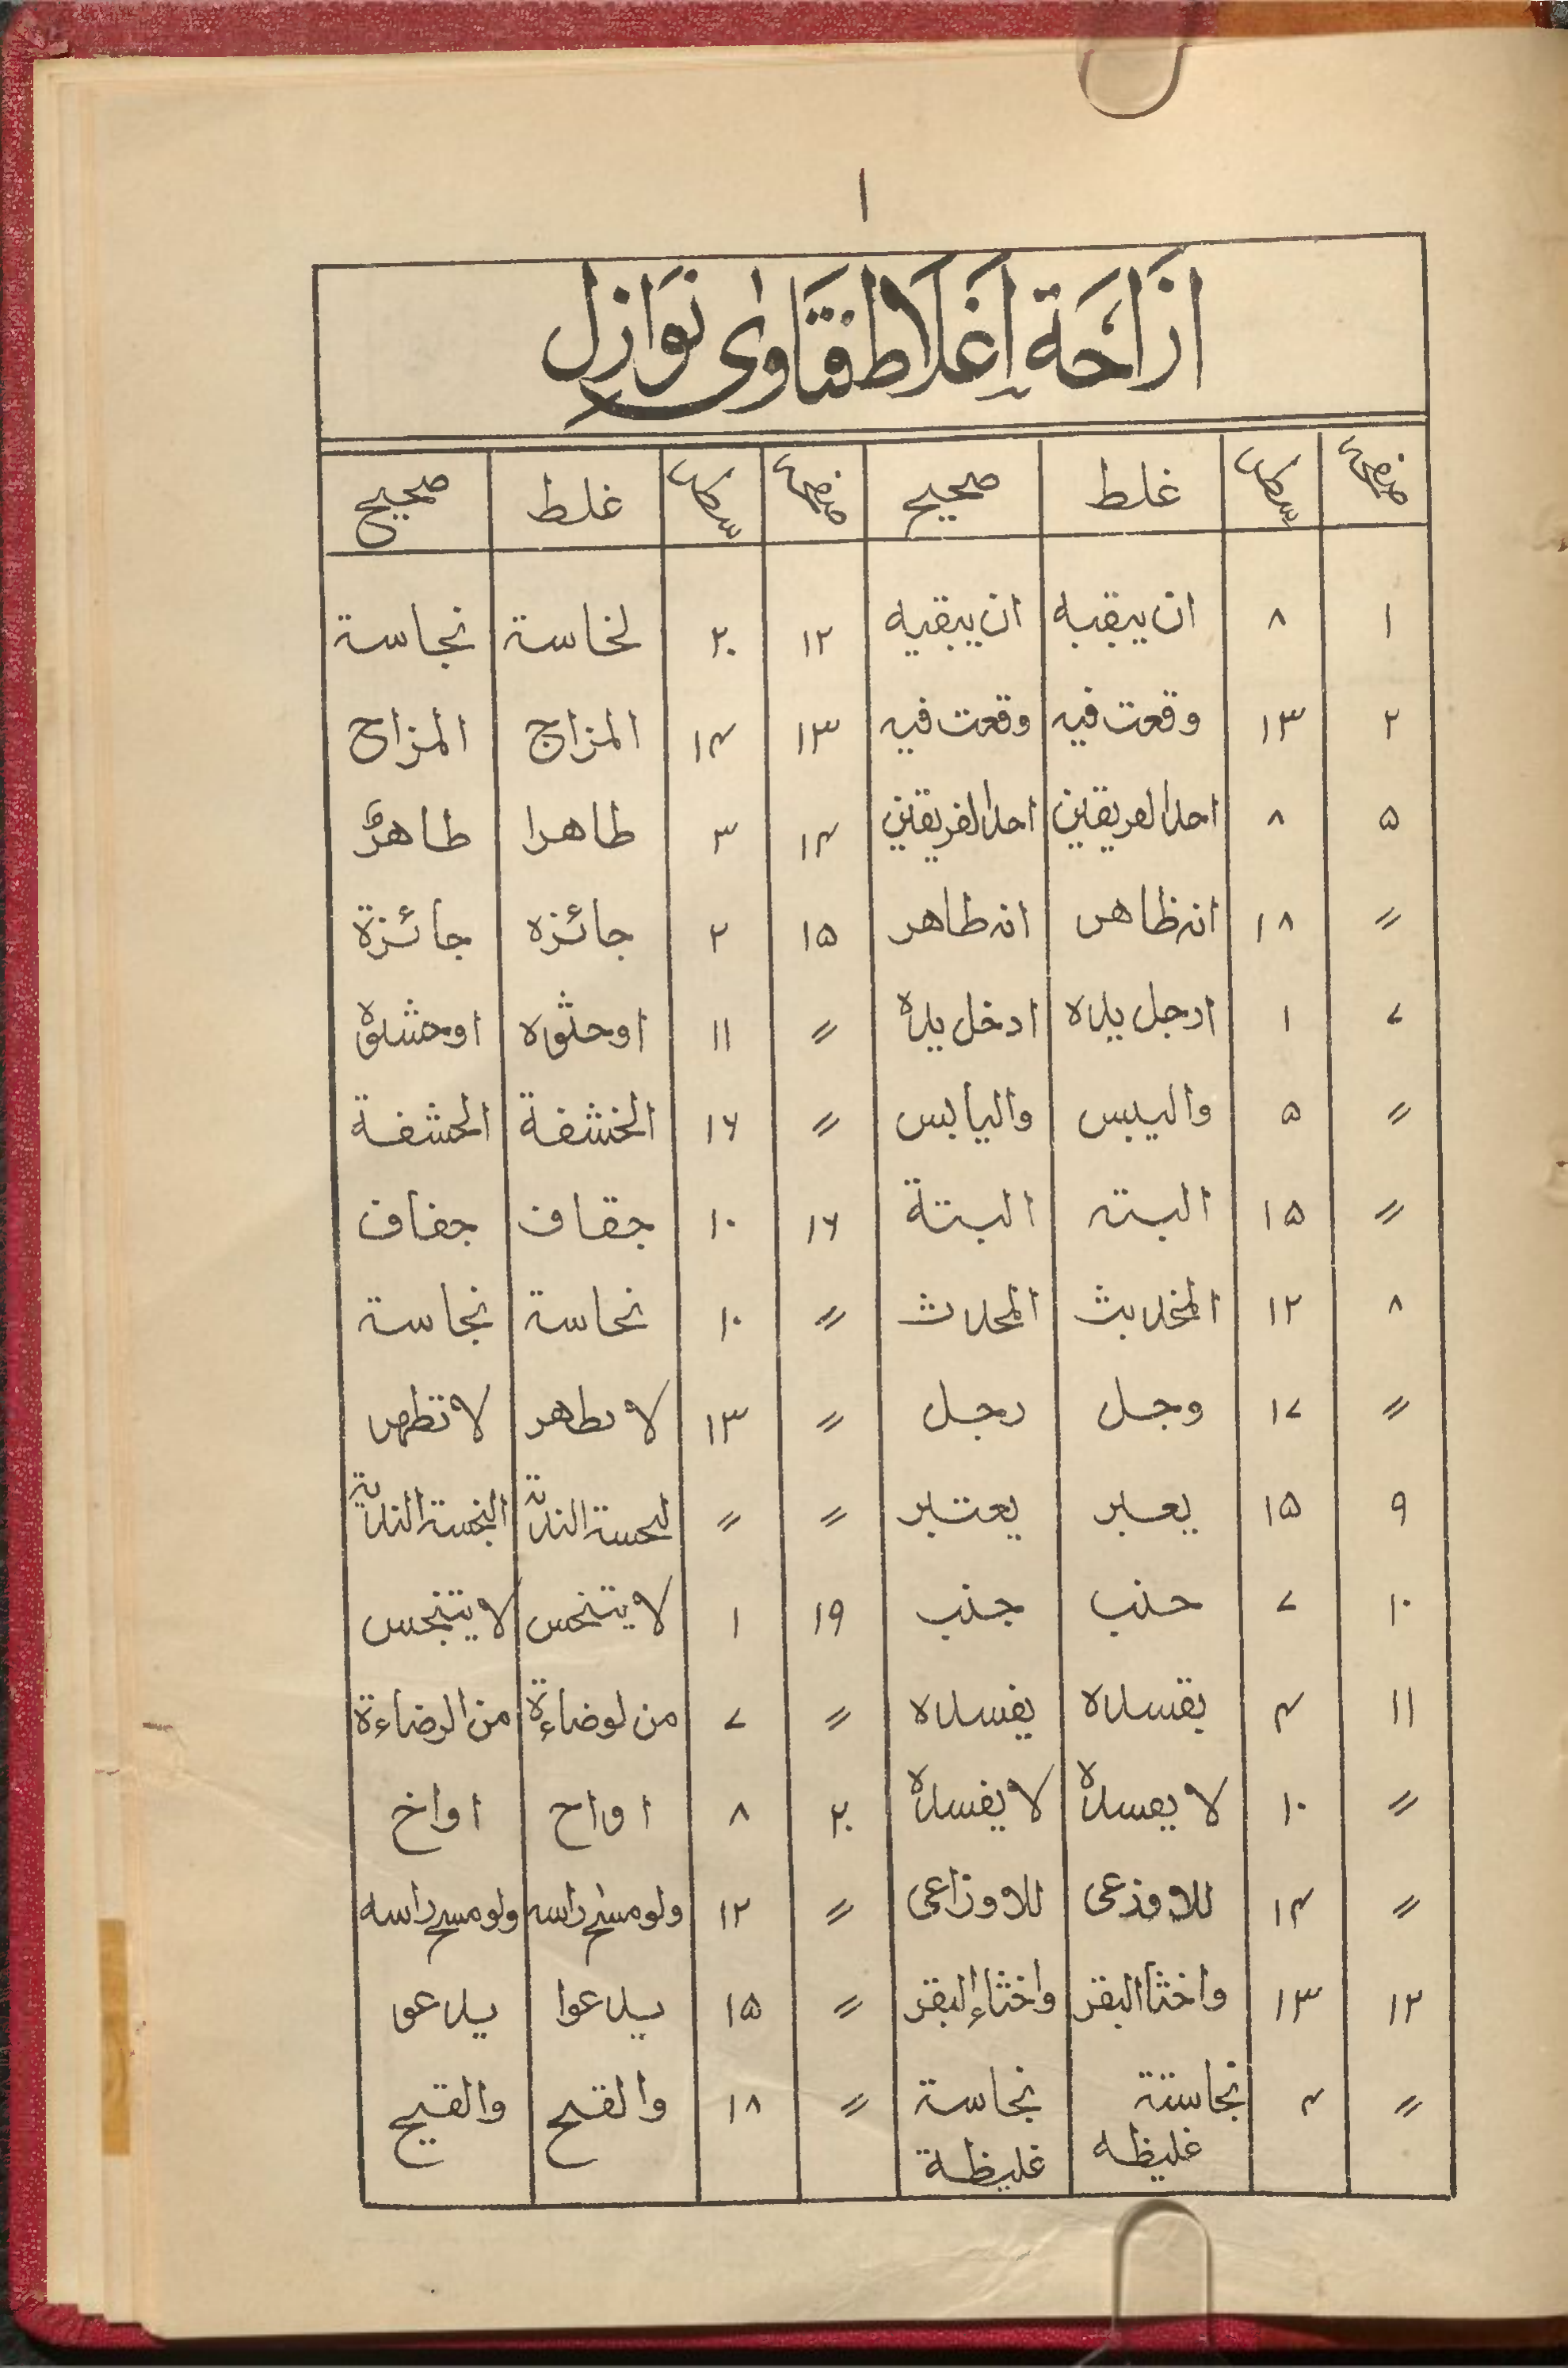 ۱
اَزَاحَة اِغَلَاط فَتَاوٰی نَوَازِل
صفحہ سطر غلط صحیح صفحہ سطر غلط صحیح
۱ ۸ ان يبقبه ان يبقيه ۱۲ ۲۰ لخاسة نجاسة
۲ ۱۳ وقعت فيه وقعت فيه ۱۳ ۱۴ المزاج المزاح
۵ ۸ احد العريقين احد الفريقين ۱۴ ۳ طاهرا طاهرٌ
〃 ۱۸ انه ظاهر انه طاهر ۱۵ ۲ جائزه جائزة
۷ ۱ ادجل يده ادخل يده 〃 ۱۱ اوحثوه اوحشوة
〃 ۵ واليبس واليابس 〃 ۱۶ الخشفة الحشفة
〃 ۱۵ البته البتة ۱۶ ۱۰ جقاف جفاف
۸ ۱۲ المخديث المحدث 〃 ۱۰ نحاسة نجاسة
〃 ۱۷ وجل رجل 〃 ۱۳ لا ىطاهر لا تطهر
۹ ۱۵ يعبر يعتبر 〃 〃 لحسة الندة النجسة الندية
۱۰ ۷ حنب جنب ۱۹ ۱ لا يتنخس لا يتنجس
۱۱ ۴ يقسده يفسده 〃 ۷ من لوضاءة من الرضاءة
〃 ۱۰ لا يعسده لا يفسده ۲۰ ۸ اواح اواخ
〃 ۱۴ للاوذعى للاوزاعى 〃 ۱۲ ولو مسخ راسه ولو مسح راسه
۱۲ ۱۳ واخثا البقر واخثاء البقر 〃 ۱۵ يدعوا يدعو
〃 ۴ نجاستة غليظه نجاسة غليظة 〃 ۱۸ والقبح والقيح